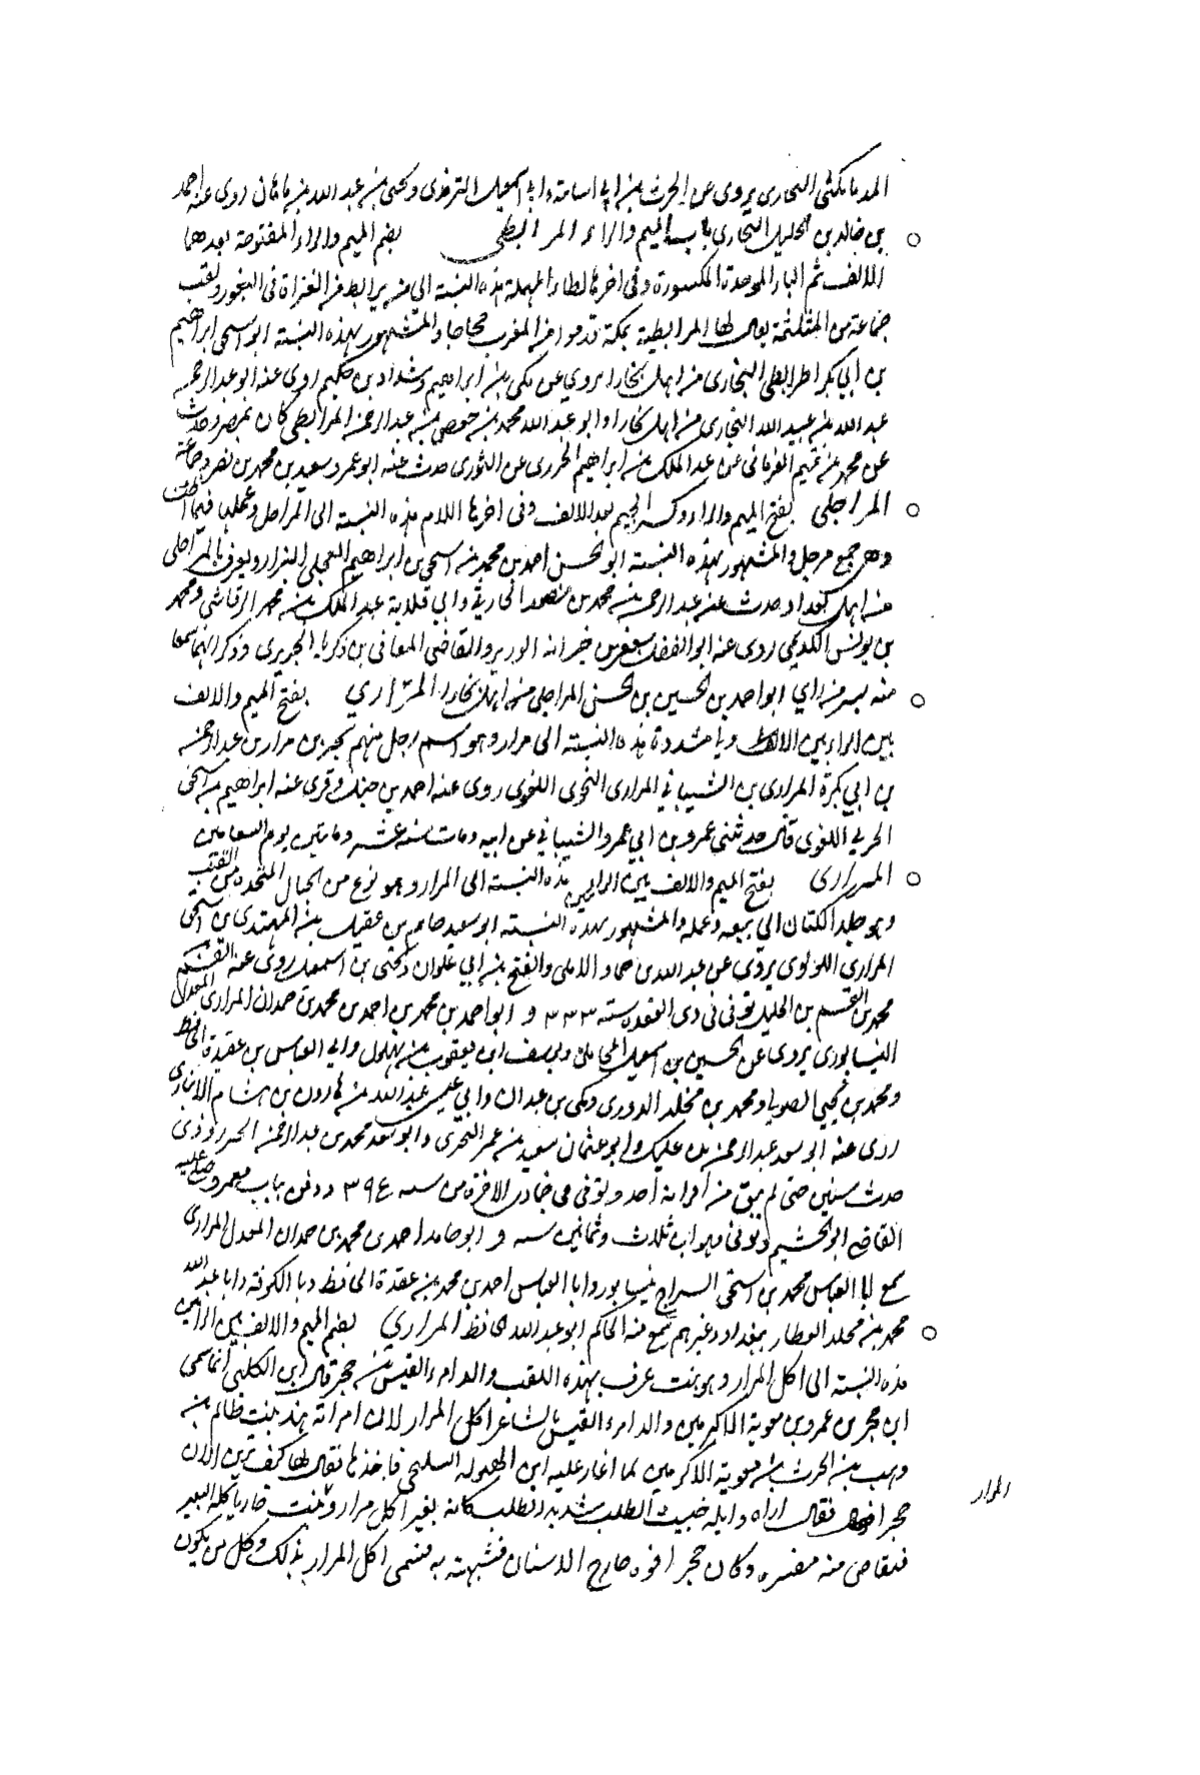 المديانكثي البخاري يروي عن الحرث بن ابي اسامة وابي اسمعيل الترمذي ويحيى بن عبد الله بن ماهان روى عنه احمد
بن خالد بن الخليل البخاري باب الميم والراء المرابطي بضم الميم والراء المفتوحة بعدهما
الالف ثم الباء الموحدة المكسورة وفي اخرها الطاء المهملة هذه النسبة الى من يرابط من الغزاة في الثغور ولقب
جماعة من المتلثمة يقال لها المرابطية بمكة قدموا من المغرب حجاجا والمشهور بهذه النسبة ابو اسحق ابراهيم
بن ابي بكر المرابطي البخاري من اهل بخارا يروي عن مكي بن ابراهيم وشداد بن حكيم روى عنه ابو عبد الرحمن
عبد الله بن عبيد الله البخاري من اهل بخارا وابو عبد الله محمد بن حفص بن عبد الرحمن المرابطي كان بمصر وحدث
عن محمد بن تميم الفريابي عن عبد الملك بن ابراهيم الجدي عن الثوري حدث عنه ابو عمرو سعيد بن محمد بن نصر وجماعة
المراجلي بفتح الميم والراء وكسر الجيم بعد الالف وفي اخرها اللام هذه النسبة الى المراجل وعملها فيما اظن
وهي جمع مرجل والمشهور بهذه النسبة ابو الحسن احمد بن محمد بن اسحق بن ابراهيم العجلي البزار ويعرف بالمراجلي
من اهل بغداد حدث عن عبد الرحمن بن محمد بن منصور الحارثي وابي قلابة عبد الملك بن محمد الرقاشي ومحمد
بن يونس الكديمي روى عنه ابو الفضل جعفر بن خيرانه الوزير والقاضي المعافى بن زكريا الجريري وذكر انهما سمعا
منه بسر من راي ابو احمد بن الحسين بن الحسن المراجلي من اهل بخارا المراري بفتح الميم والالف
بين الراءين الالف وياء مشددة هذه النسبة الى مرار وهو اسم رجل منهم بكير بن مرار بن عبد الرحمن
بن ابي بكرة المراري بن الشيباني المراري النحوي اللغوي روى عنه احمد بن حنبل وقرى عنه ابراهيم بن اسحق
الحربي اللغوي قال حدثني عمرو بن ابي عمرو الشيباني عن ابيه ومات سنه عشر ومايتين يوم السعانين
المراري بفتح الميم والالف بين الراءين هذه النسبة الى المرار وهو نوع من الحبال المتخذة من القنب
وهو جلد الكتان الى بيعه وعمله والمشهور بهذه النسبة ابو سعيد حاتم بن عقيل بن المهتدي بن اسحق
المراري اللولوي يروي عن عبد الله بن حماد الاملي والفتح بن ابي علوان ويحيى بن اسمعيل روى عنه القسم
محمد بن القسم بن الخليل توفي في ذي القعدة سنه ٣٣٣ و ابو احمد بن محمد بن احمد بن محمد بن حمدان المراري المعدل
النيسابوري يروي عن الحسين بن اسمعيل المحاملي ويوسف ابن يعقوب بن بهلول وابي العباس بن عقدة الحافظ
ومحمد بن يحيى الصولي ومحمد بن مخلد الدوري ومكي بن عبدان وابي عيسى عبد الله بن هارون بن هشام الانباري
روى عنه ابو سعد عبد الرحمن بن عليك وابو عثمان سعيد بن عمر البحري وابو سعد محمد بن عبد الرحمن الجنزروذي
حدث سنين حتى لم يبق من اقرانه احد وتوفي في جمادى الاخرة من سنه ٣٩٤ ودفن بباب معمر وصلى عليه
القاضي ابو الهيثم وتوفي وهو ابن ثلاث وثمانين سنه و ابو حامد احمد بن محمد بن حمدان المعدل المراري
سمع ابا العباس محمد بن اسحق السراج بنيسابور وابا العباس احمد بن محمد بن عقدة الحافظ بالكوفة وابا عبد الله
محمد بن مخلد العطار ببغداد وغيرهم سمع منه الحاكم ابو عبد الله الحافظ المراري بضم الميم والالف بين الراءين
هذه النسبة الى اكل المرار وهو نبت عرف بهذه اللقب والد امرء القيس بن حجر قال ابن الكلبي انما سمى
ابن حجر بن عمرو بن معوية الاكرمين والد امرء القيس الشاعر اكل المرار لان امراته هند بنت ظالم بن
وهب بن الحرث بن معوية الاكرمين لما اغار عليه ابن الهبولة السليحي فاخذها فقال لها كيف ترين الان
حجر افقال اراه والله خبيث الطلب شديد الطلب كانه بعير اكل مرار ونبت حار ياكله البعير
فتقلص منه مشفره وكان حجر افوه خارج الاسنان فشبهته به فسمى اكل المرار بذلك وكل من يكون
المرار